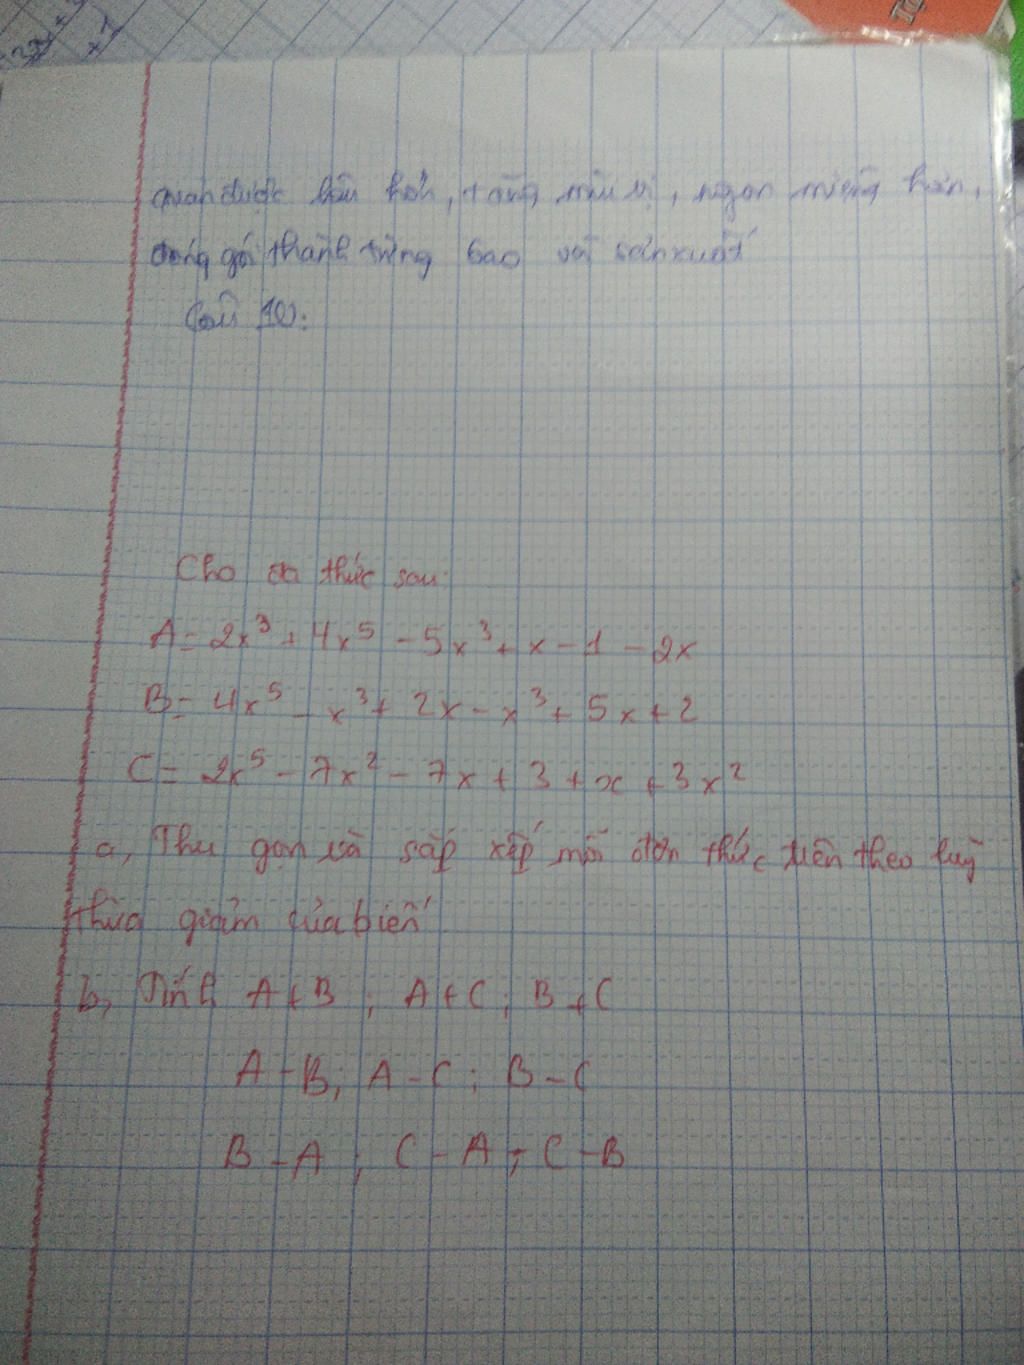 quản được lâu hơn, tăng mùi vị, ngon miệng hơn,
đóng gói thành từng bao và sản xuất
Câu 10:
Cho đa thức sau:
A = 2x³ + 4x⁵ - 5x³ + x - 1 - 2x
B = 4x⁵ - x³ + 2x - x³ + 5x + 2
C = 2x⁵ - 7x² - 7x + 3 + x + 3x²
a, Thu gọn và sắp xếp mỗi đơn thức trên theo luỹ
thừa giảm của biến
b, Tính A + B ; A + C ; B + C
A - B ; A - C ; B - C
B - A ; C - A ; C - B